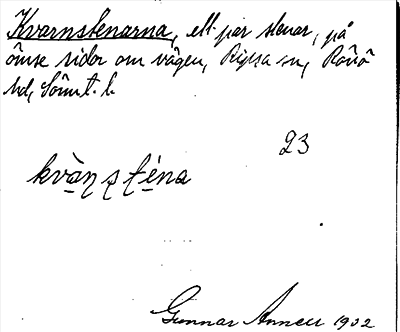 Kvarnstenarna, ett par stenar, på
ömse sidor om vägen, Ripsa sn, Rönö
hd, Sörml. l.
23
kvàn̥ s téna
Gunnar Annell 1932